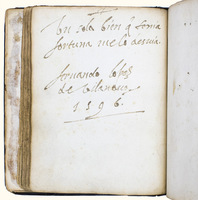 Un solo bien q tenia
fortuna me lo desuia.
fernando
de
1596.